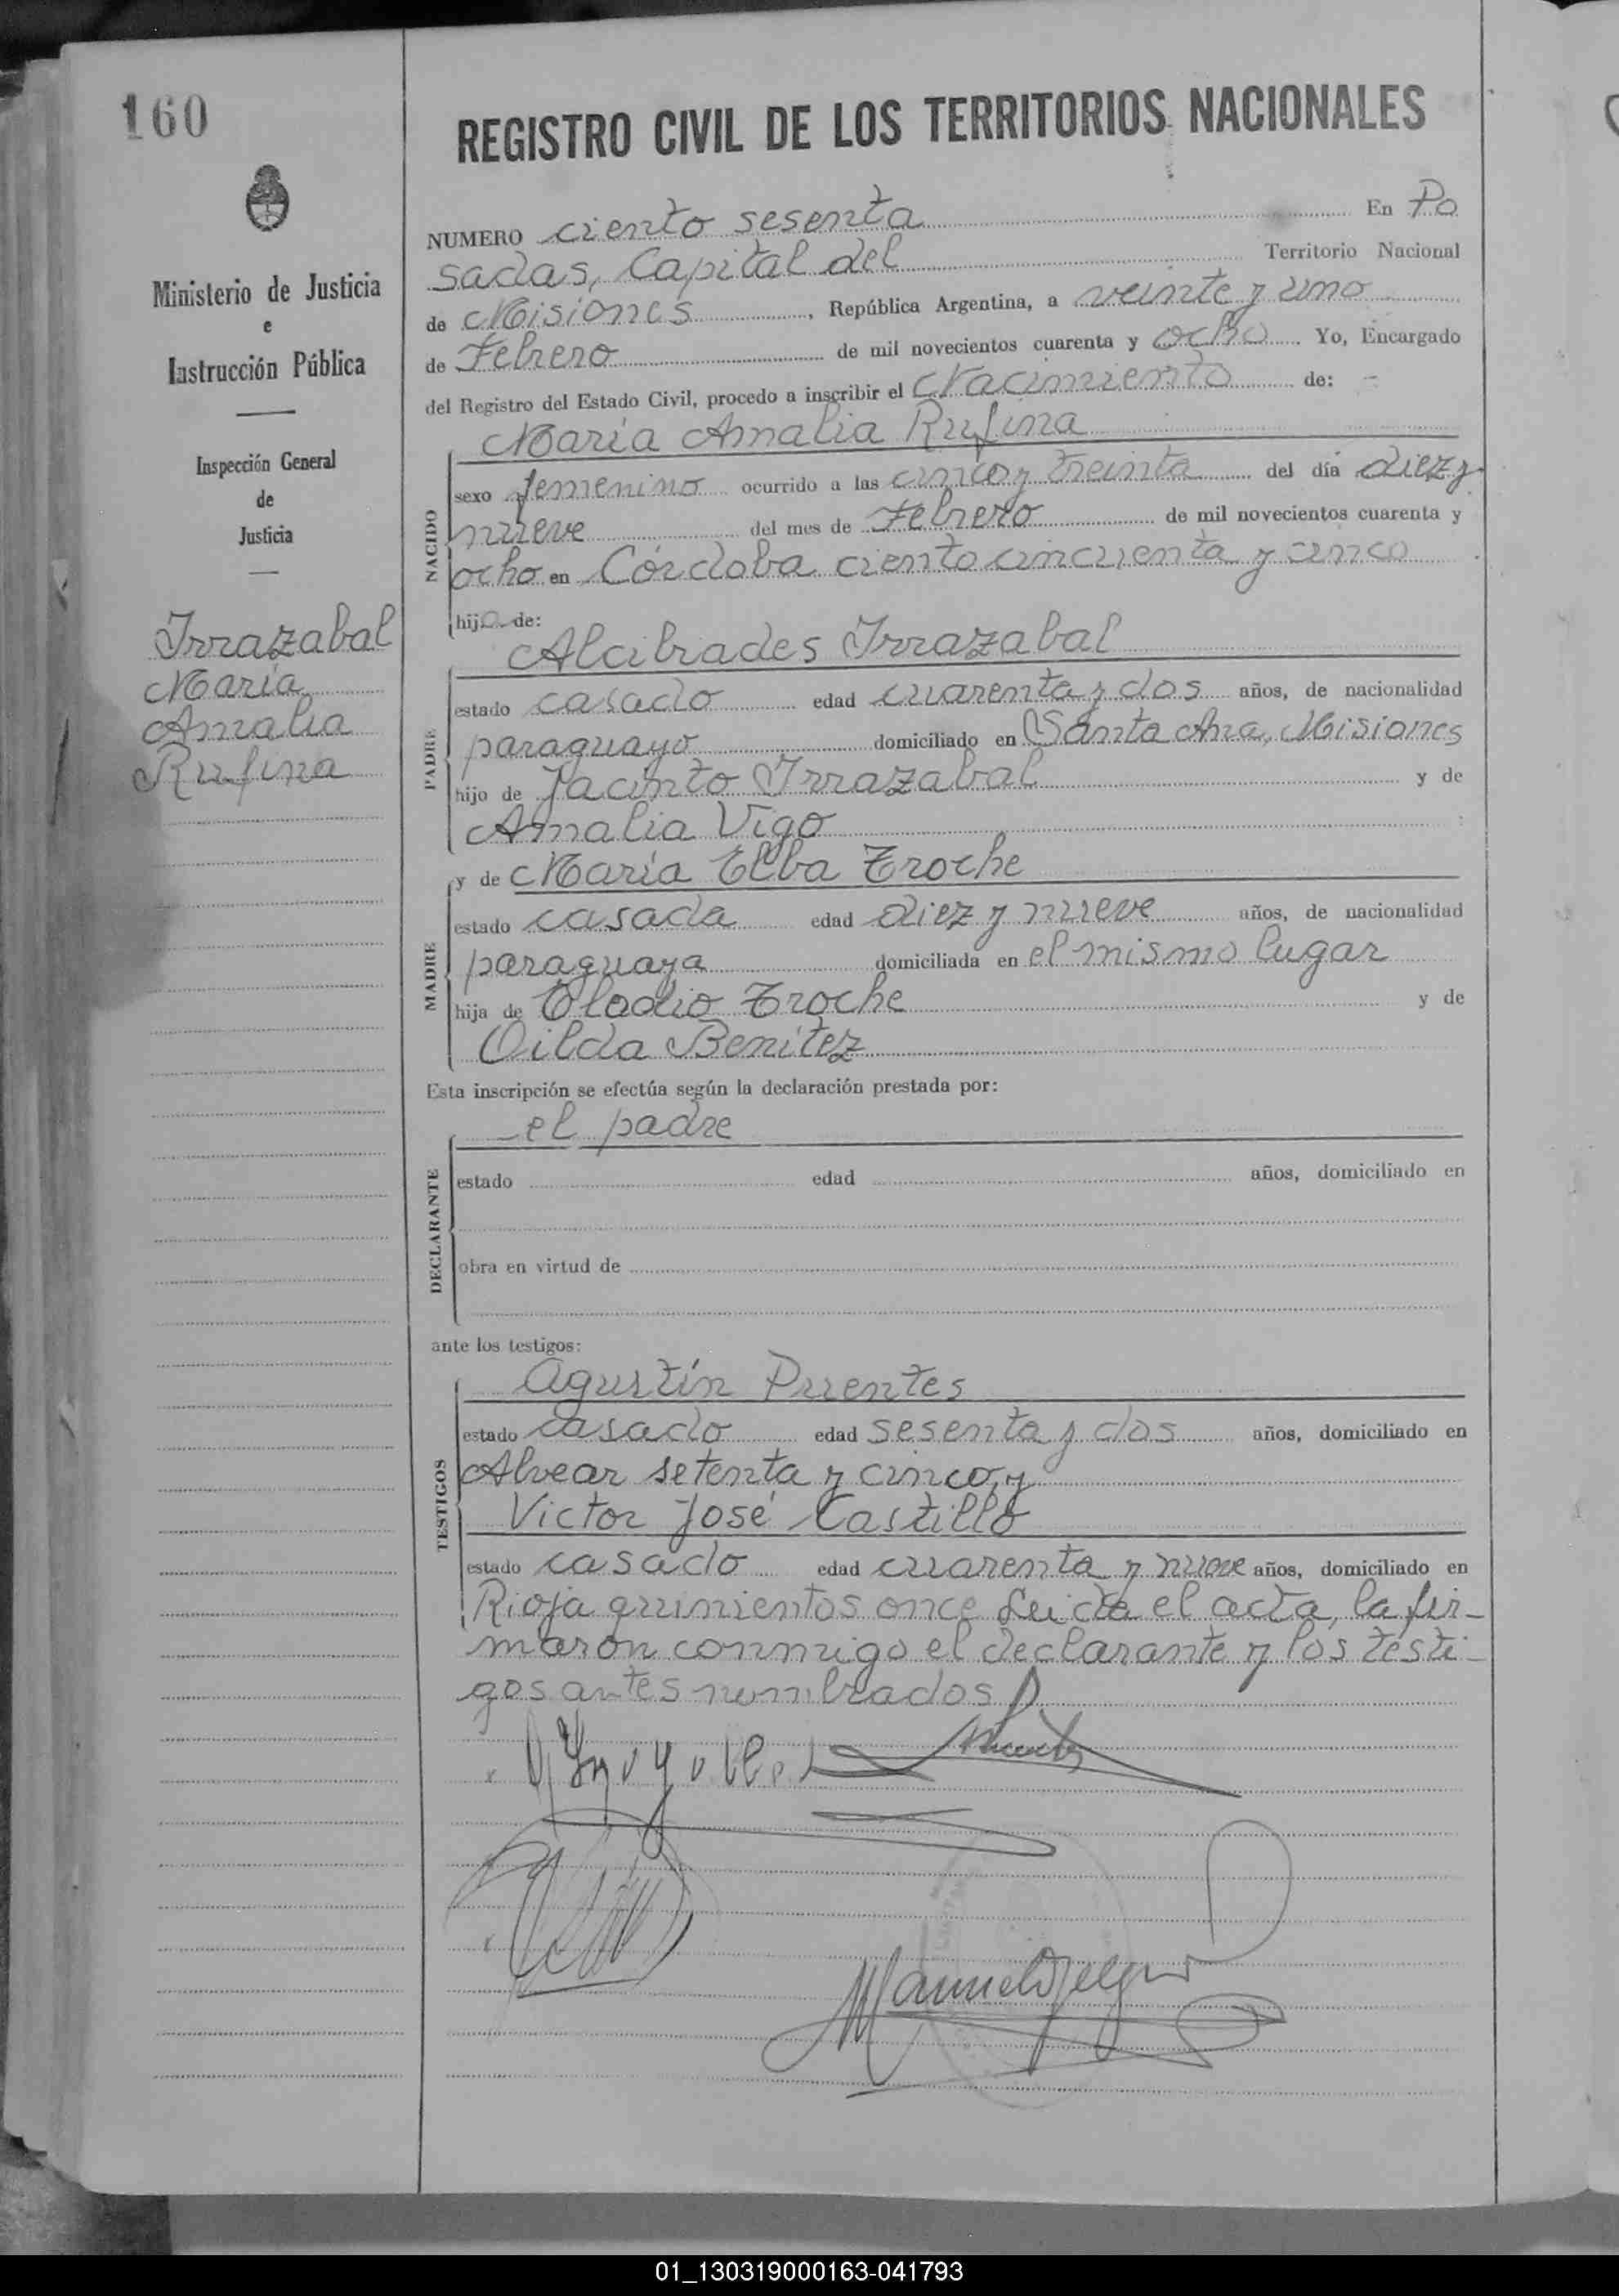 160
REGISTRO CIVIL DE LOS TERRITORIOS NACIONALES
Ministerio de Justicia
e
Instrucción Pública
Inspección General
de
Justicia
Irrazabal
María
Amalia
Rufina
NUMERO ciento sesenta En Po
sadas, Capital del Territorio Nacional
de Misiones, República Argentina, a veinte y uno
de Febrero de mil novecientos cuarenta y ocho. Yo, Encargado
del Registro del Estado Civil, procedo a inscribir el Nacimiento de: -
María Amalia Rufina
NACIDO
sexo femenino ocurrido a las cinco y treinta del día diez y
nueve del mes de Febrero de mil novecientos cuarenta y
ocho en Córdoba ciento cincuenta y cinco
hija de:
Alcibrades Irrazabal
PADRE
estado casado edad cuarenta y dos años, de nacionalidad
paraguayo domiciliado en Santa Ana, Misiones
hijo de Jacinto Irrazabal y de
Amalia Vigo
y de María Elba Troche
MADRE
estado casada edad diez y nueve años, de nacionalidad
paraguaya domiciliada en el mismo lugar
hija de Eladio Troche y de
Oilda Benítez
Esta inscripción se efectúa según la declaración prestada por:
el padre
DECLARANTE
estado edad años, domiciliado en
obra en virtud de
ante los testigos:
Agustín Puentes
TESTIGOS
estado casado edad sesenta y dos años, domiciliado en
Alvear setenta y cinco, y
Victor José Castillo
estado casado edad cuarenta y nueve años, domiciliado en
Rioja quinientos once Leída el acta, la fir-
maron conmigo el declarante y los testi-
gos antes nombrados
01_130319000163-041793